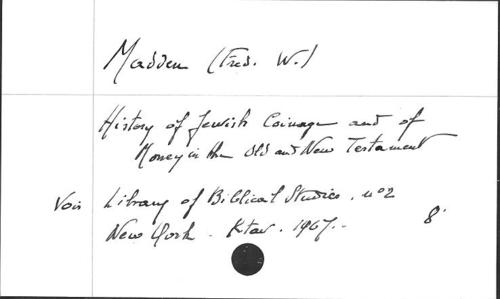 Madden (Fred. W.)
History of Jewish Coinage and of
Money in the Old and New Testament
Voir Library of Biblical Studies. n°2
New York. Ktav. 1967.- 8°